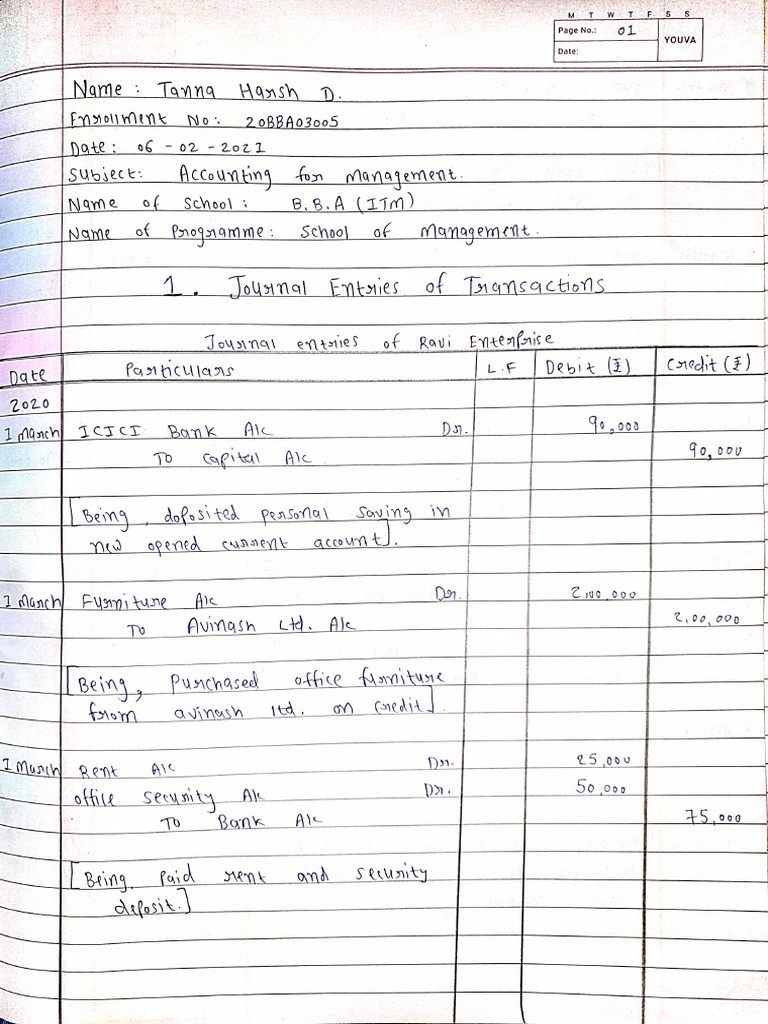 M T W T F S S
Page No.: 01
YOUVA
Date:
Name : Tanna Harsh D.
Enrollment No : 20BBA03005
Date : 06 - 02 - 2021
Subject: Accounting for Management.
Name of School : B.B.A (ITM)
Name of Programme: School of Management.
1. Journal Entries of Transactions
Journal entries of Ravi Enterprise
Date Particulars L.F Debit (₹) Credit (₹)
2020
1 March ICICI Bank A/c Dr. 90,000
To Capital A/c 90,000
[Being, doposited personal saving in
new opened current account].
1 March Furniture A/c Dr. 2,00,000
To Avinash Ltd. A/c 2,00,000
[Being, Purchased office furniture
from avinash ltd. on credit].
1 March Rent A/c Dr. 25,000
office security A/c Dr. 50,000
To Bank A/c 75,000
[Being, Paid rent and security
deposit.]